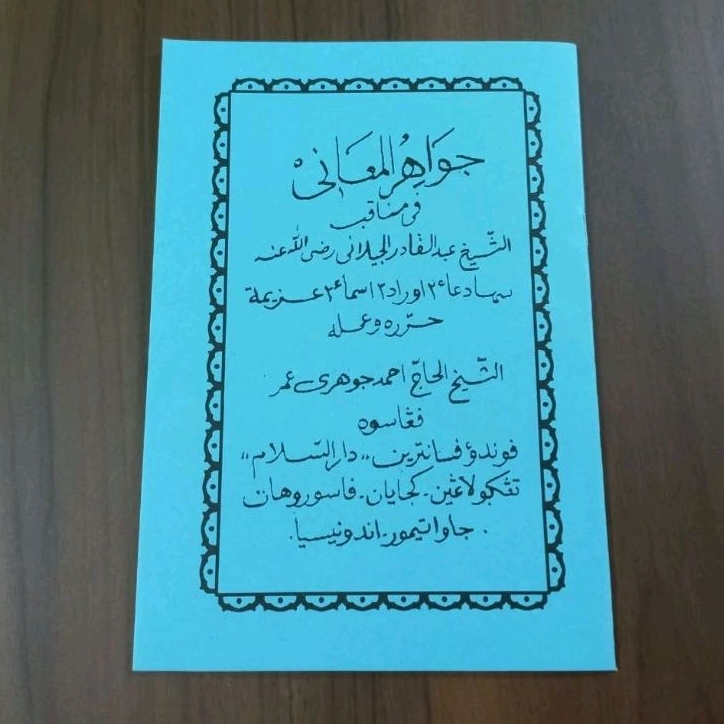 جواهر المعانى
فى مناقب
الشّيخ عبد القادر الجيلانى رضى الله عنه
سهادعاء٢ اوراد٢ اسماء٣ عزيمة
حرّره وعمله
الشّيخ الحاجّ احمد جوهرى عمر
فڠاسوه
فوندؤ فسانترين ،،دار السّلام،،
تڠكولاڠين ـ كجايان ـ فاسوروهان
. جاوا تيمور ـ اندونيسيا.